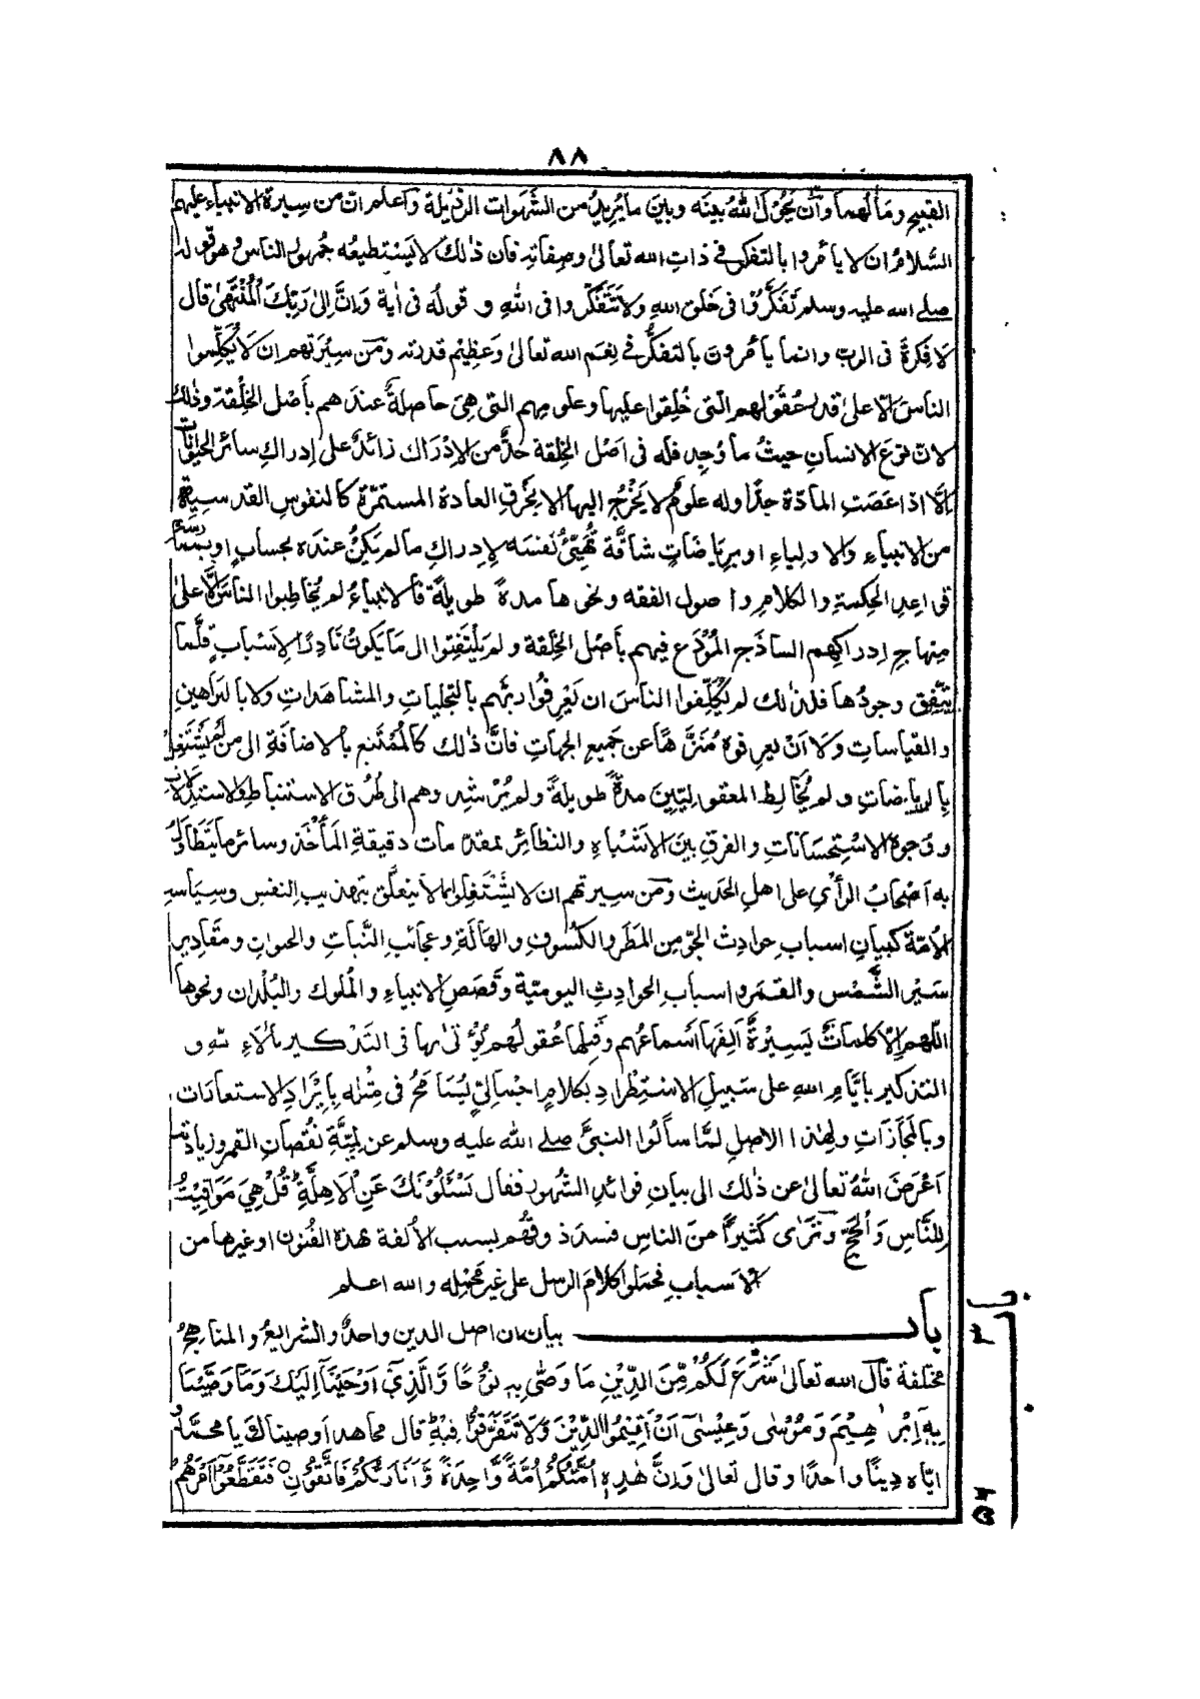 ٨٨
القبيح ومَالَهما وأن يَحُولَ اللهُ بينَه وبينَ ما يُريدُ من الشَهَوات الرذيلة وَاعلم ان من سِيرة الانبياء عليهم
السَّلامُ ان لا يأمروا بالتفكر في ذاتِ الله تعالىٰ وصِفاتهِ فان ذٰلك لا يَسْتطيعُه جُمهورُ الناس وهو قوله
صلے الله عليه وسلم تَفَكَّرُوْا فى خَلق اللهِ ولا تَتَفَكَّرُوا فى اللهِ و قولُه فى اٰية وَانَّ اِلىٰ رَبِّكَ الْمُنْتَهٰى قال
لا فِكرةَ فى الربّ وانما يأمرون بالتفكُّر فى نِعَم الله تعالىٰ وعَظِيْم قدرته ومن سِيْرَتهم ان لا يُكلّموا
الناسَ الا علىٰ قدر عُقُوْلهم الّتى خُلِقوا عليها وعلومِهم التى هِىَ حاصلةٌ عندَهم بأصْل الخِلْقة وذٰلك
لان نوعَ الانسانِ حيثُ ما وُجِد فله فى اَصْل الخِلقة حدٌّ من الاِدْراك زائدٌ على اِدراكِ سائر الحيوانات
اِلَّا اذا عَصَتِ المادّة جدًّا وله علومٌ لا يَخْرُجُ اليها الا بخَرْقِ العادة المستمرّة كالنفوس القدسيّة
من الانبياءِ وَالاولياءِ او برِياضَاتٍ شاقّة تُهَيِّئُ نفسَه لاِدراكِ مالم يَكنْ عندَه بحسابٍ او بممارسة
قواعِد الحِكمةِ والكلامِ واصول الفقه ونحوها مدةً طويلةً فالانبياءُ لم يُخاطِبوا الناسَ الا علىٰ
مِنهاجِ ادراكِهم الساذَجِ المُوْدَعِ فيهم بأصْل الخِلقة ولم يَلْتَفِتوا الى ما يَكونُ نَادِرًا لِاَسْبابٍ قلَّما
يَتَّفِق وجودُها فلذٰلك لم يُكلِّفوا الناسَ ان يَعْرِفُوا ربَّهم بالتجلياتِ والمشاهَداتِ ولا بالبَراهينِ
والقياساتِ وَلَا اَنْ يعرِفوهُ مُنَزَّهًا عن جَميع الجهاتِ فانَّ ذٰلك كالمُمْتَنِع بالاضافَةِ الى من لم يَشْتَغِل
بالرياضاتِ ولم يُخَالِط المعقوليّينَ مدةً طويلةً ولم يُرْشِدوهم الى طُرُق الاستنباط والاستدلالات
ووُجوهِ الاسْتِحسَانات والفرقِ بينَ الاَشْباهِ والنظائِر بمقدمات دقيقةِ المَأْخَذِ وسائر ما يَتَطاوَلُ
به اَصْحابُ الرأى على اهلِ الحَديث ومن سيرتهم ان لا يَشْتَغِلوا بما لا يتعلّق بتهذيب النفس وسِيَاسة
الاُمَّة كبيانِ اسبابِ حوادِث الجوّ من المَطَر والكُسوفِ والهَالَةِ وعجائبِ النَّباتِ والحيوانِ ومَقَادِيرِ
سَيْر الشَّمْس والقمر واسبابِ الحوادثِ اليوميّة وقَصَصِ الانبياءِ والمُلوك والبُلْدان ونحوها
اللّٰهم الا كلماتٌ يَسِيْرةٌ اَلِفَها اَسْماعُهم وقَبِلَها عُقولُهم يُؤْتىٰ بها فى التَذْكير بآلاءِ الله و
التذكير بأيَّامِ اللهِ على سَبيلِ الاِسْتِطْرادِ بكلامٍ اجمالىٍّ يُسَامَحُ فى مِثْلِه بإيرادِ الاستعارات
وبالمَجَازَاتِ ولِهٰذا الاصلِ لمَّا سألُوا النبىَّ صلے الله عليه وسلم عن لِمِيَّةِ نُقْصانِ القمر وزيادته
اَعْرَضَ اللهُ تعالىٰ عن ذٰلك الى بيانِ فوائدِ الشهور فقال يَسْئَلُوْنَكَ عَنِ الْاَهِلَّةِ قُلْ هِىَ مَوَاقِيْتُ
لِلنَّاسِ وَالْحَجِّ وتَرٰى كَثيرًا منَ الناسِ فسدَ ذوقُهم بسبب الاُلفة بهذه الفُنون او غيرها من
الاسبابِ فحملوا كلامَ الرسل على غير مَحْمِله والله اعلم
باب بيان ان اصل الدين واحدٌ والشرايعُ والمناهجُ
مختلفة قال الله تعالىٰ شَرَعَ لَكُمْ مِّنَ الدِّيْنِ مَا وَصّٰى بِهٖ نُوْحًا وَّالَّذِىْٓ اَوْحَيْنَآ اِلَيْكَ وَمَا وَصَّيْنَا
بِهٖٓ اِبْرٰهِيْمَ وَمُوْسٰى وَعِيْسٰٓى اَنْ اَقِيْمُوا الدِّيْنَ وَلَا تَتَفَرَّقُوْا فِيْهِ قال مجاهد اَوصيناك يا محمَّدُ
ايّاه دِينًا واحدًا وقال تعالىٰ وَاِنَّ هٰذِهٖٓ اُمَّتُكُمْ اُمَّةً وَّاحِدَةً وَّاَنَا رَبُّكُمْ فَاتَّقُوْنِ فَتَقَطَّعُوْٓا اَمْرَهُمْ